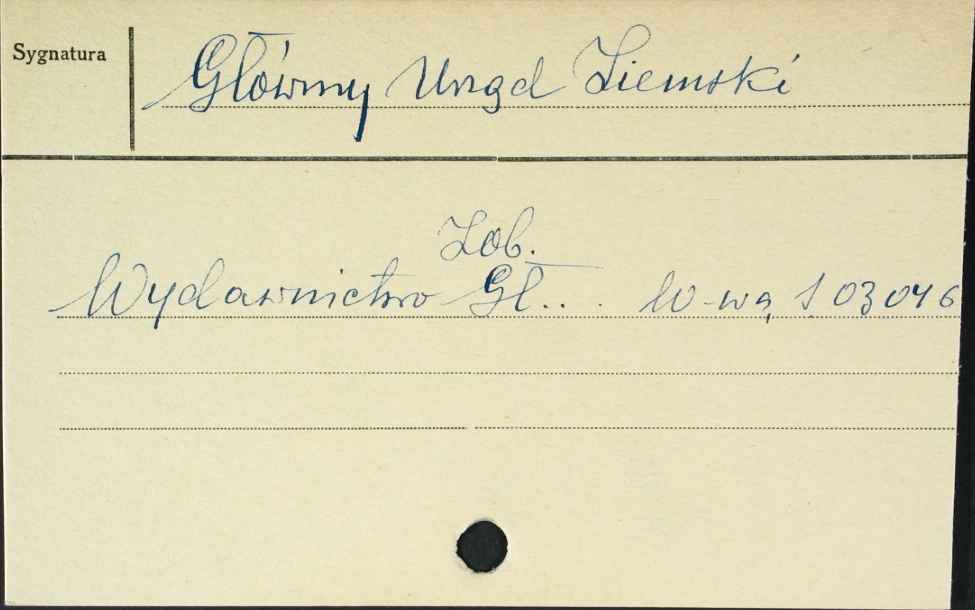 Sygnatura
Główny Urząd Ziemski
Zob.
Wydawnictwo Gł... W-wa, S 03046